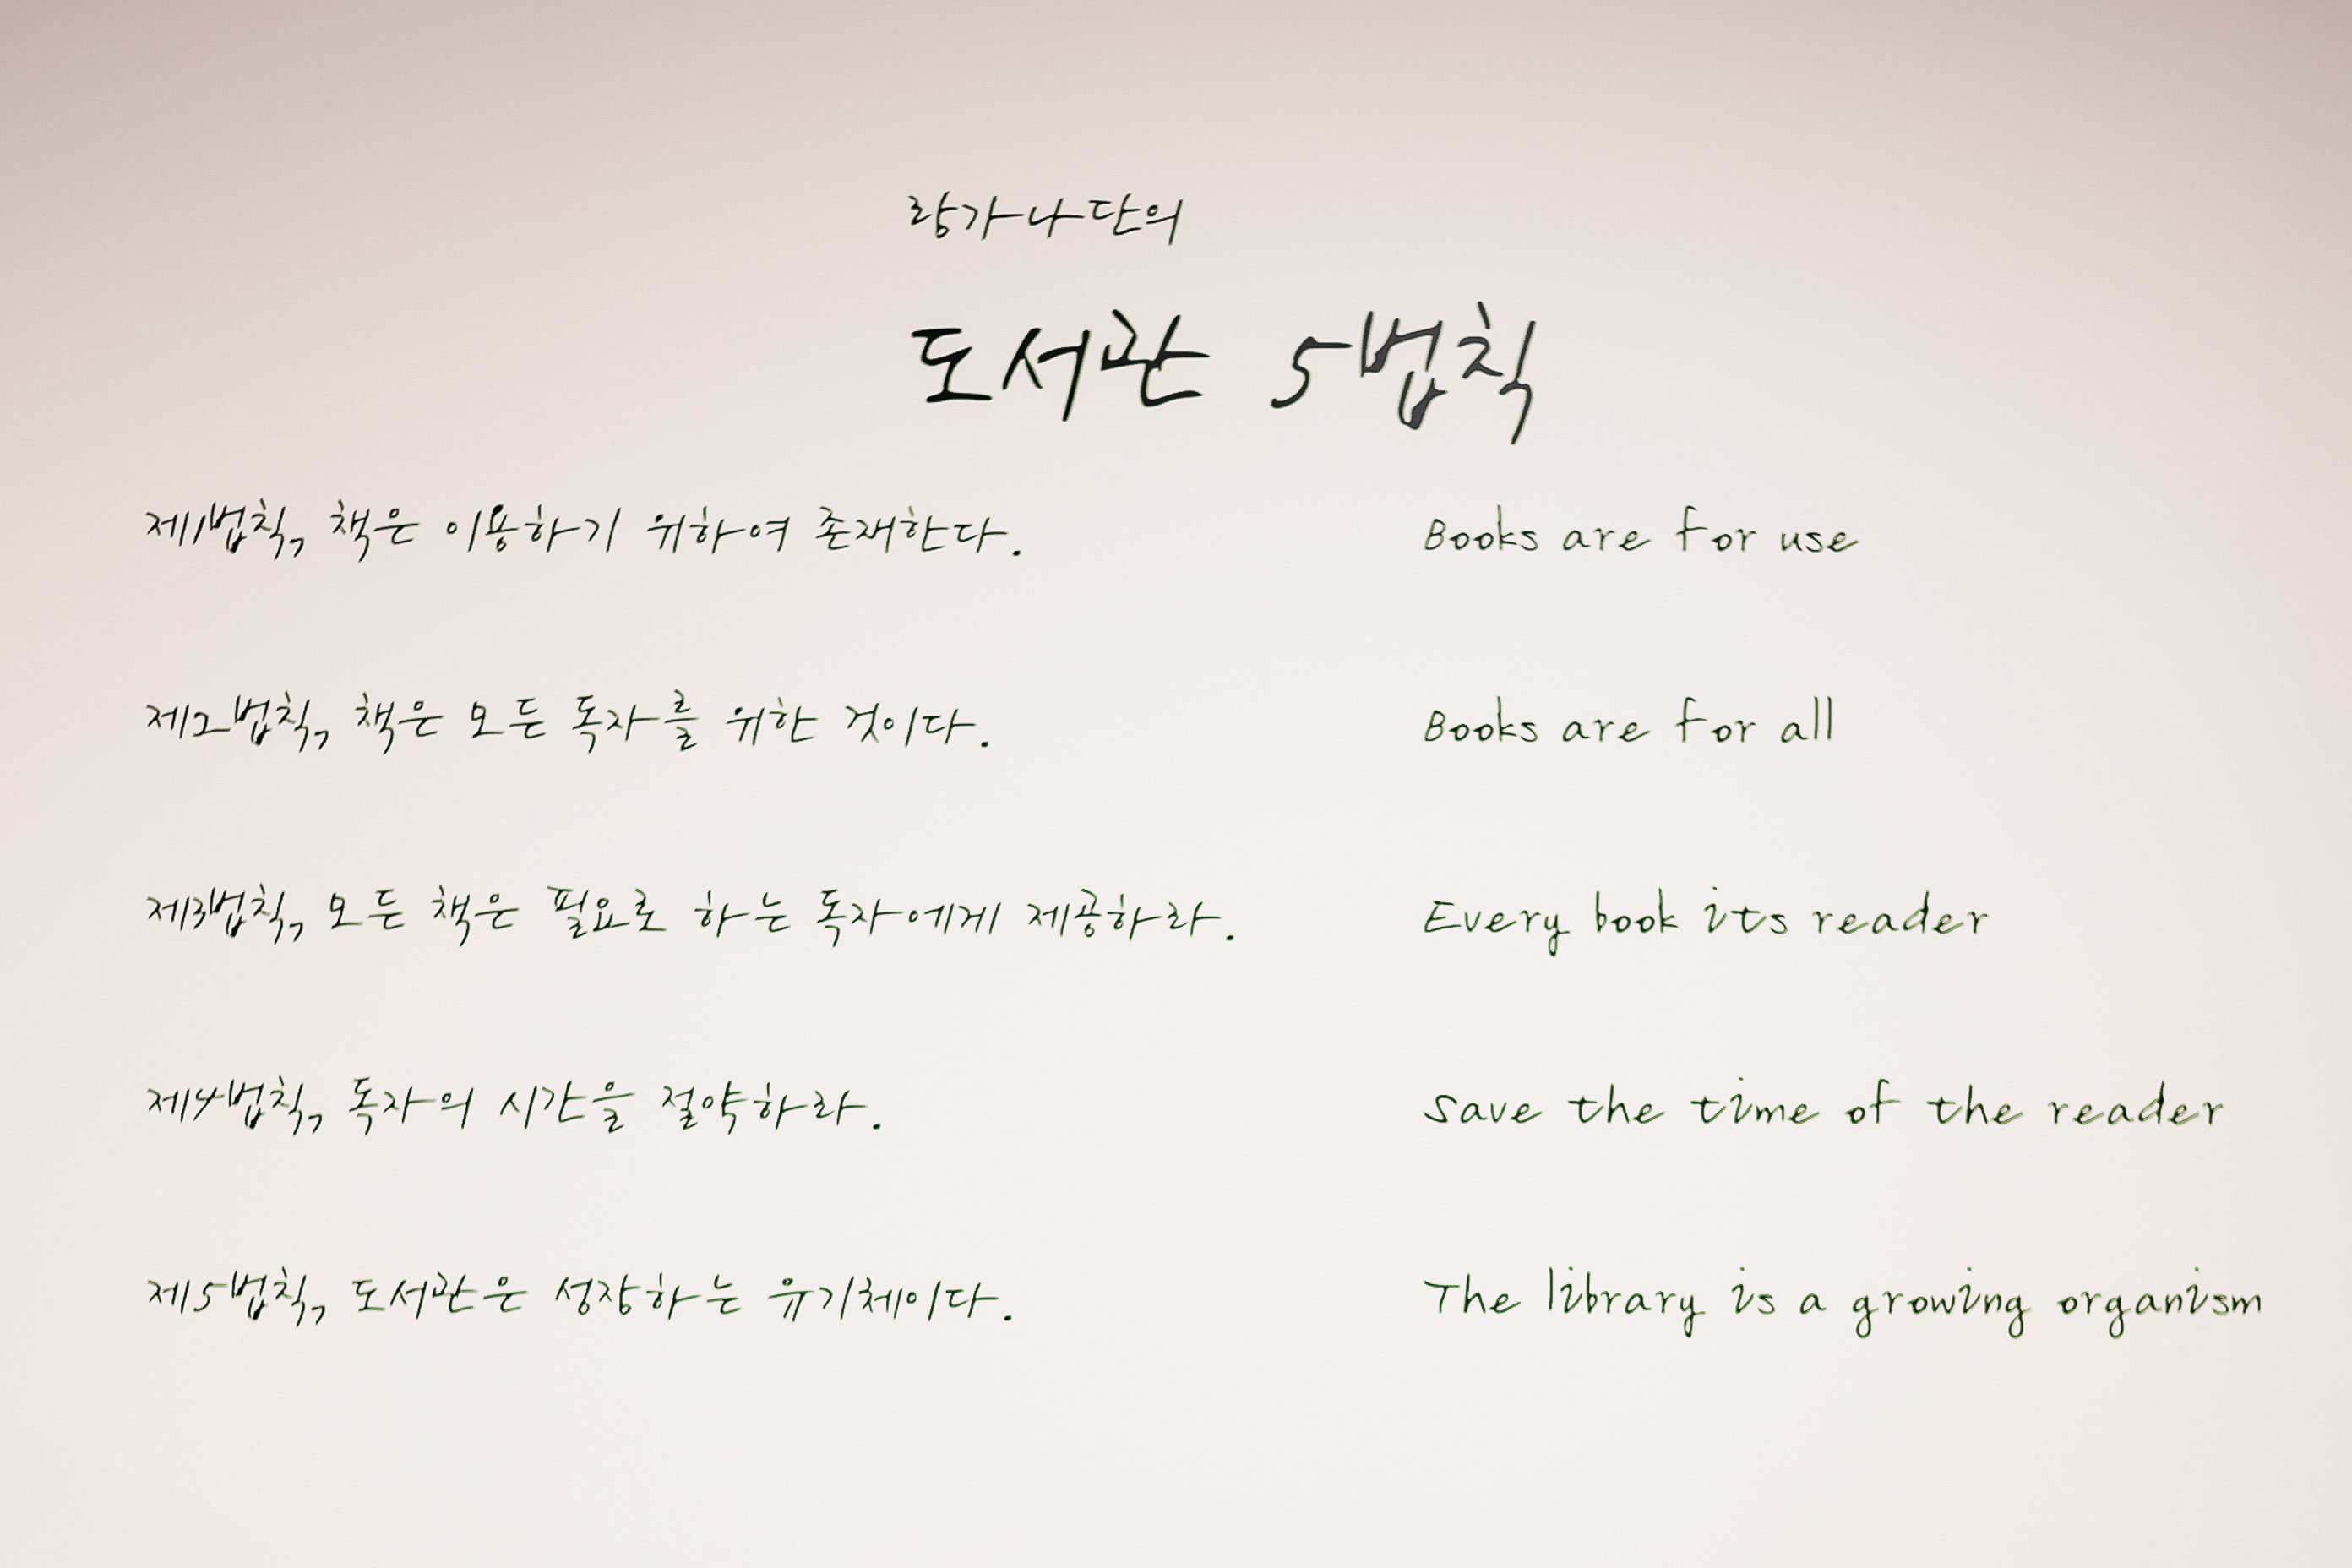 랑가나단의
도서관 5법칙
제1법칙, 책은 이용하기 위하여 존재한다. Books are for use
제2법칙, 책은 모든 독자를 위한 것이다. Books are for all
제3법칙, 모든 책은 필요로 하는 독자에게 제공하라. Every book its reader
제4법칙, 독자의 시간을 절약하라. Save the time of the reader
제5법칙, 도서관은 성장하는 유기체이다. The library is a growing organism